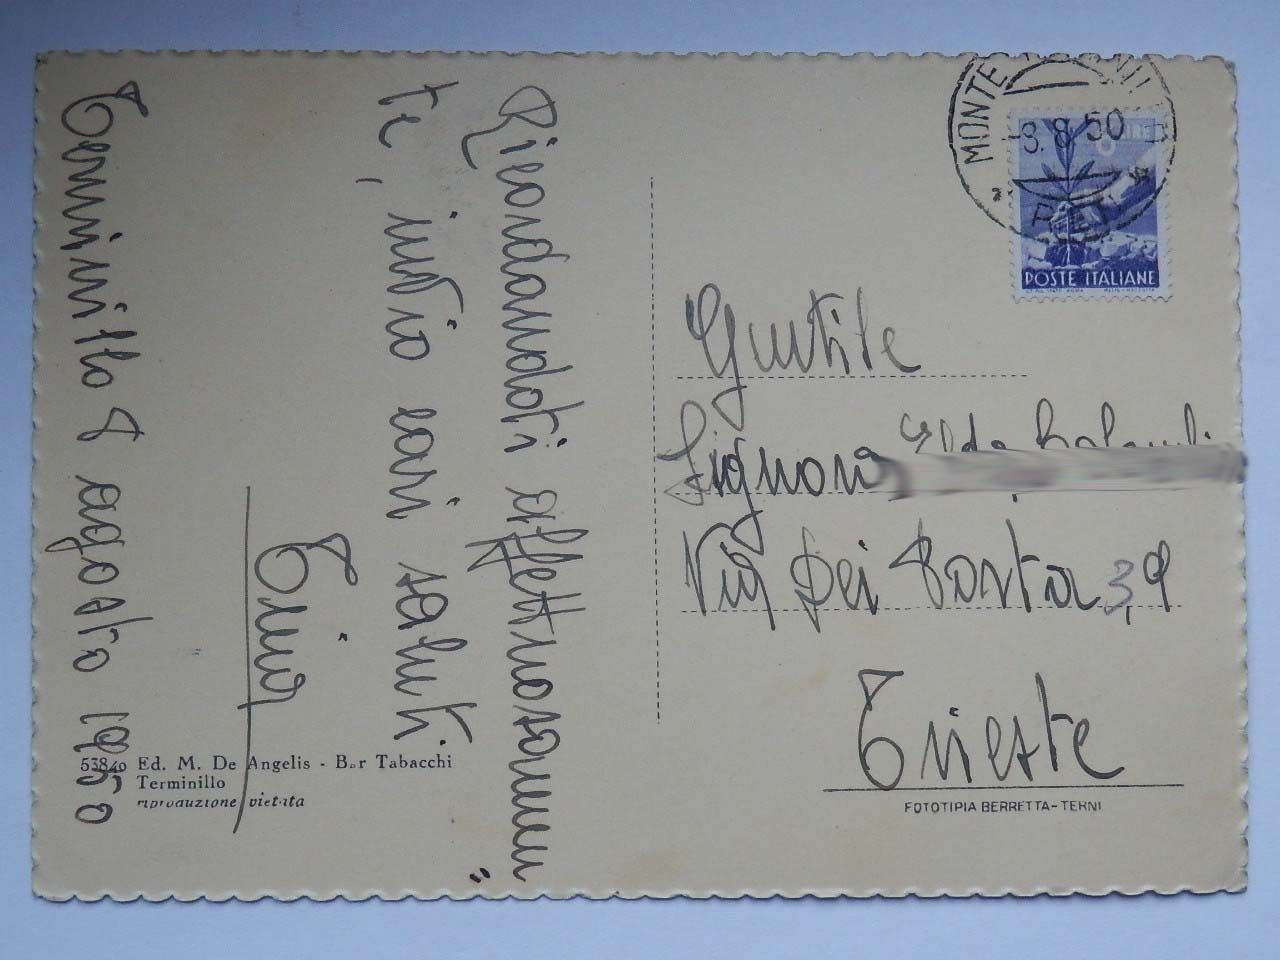 Terminillo 8 agosto 1950
Ricordandoti affettuosamen=
te, invio cari saluti
Tina
53840 Ed. M. De Angelis - Bar Tabacchi
Terminillo
riproduzione vietata
MONTE
8.8.50
RIETI
LIRE
POSTE ITALIANE
Gentile
Signora Elda
Via Dei Porta 3,
Trieste
FOTOTIPIA BERRETTA-TERNI